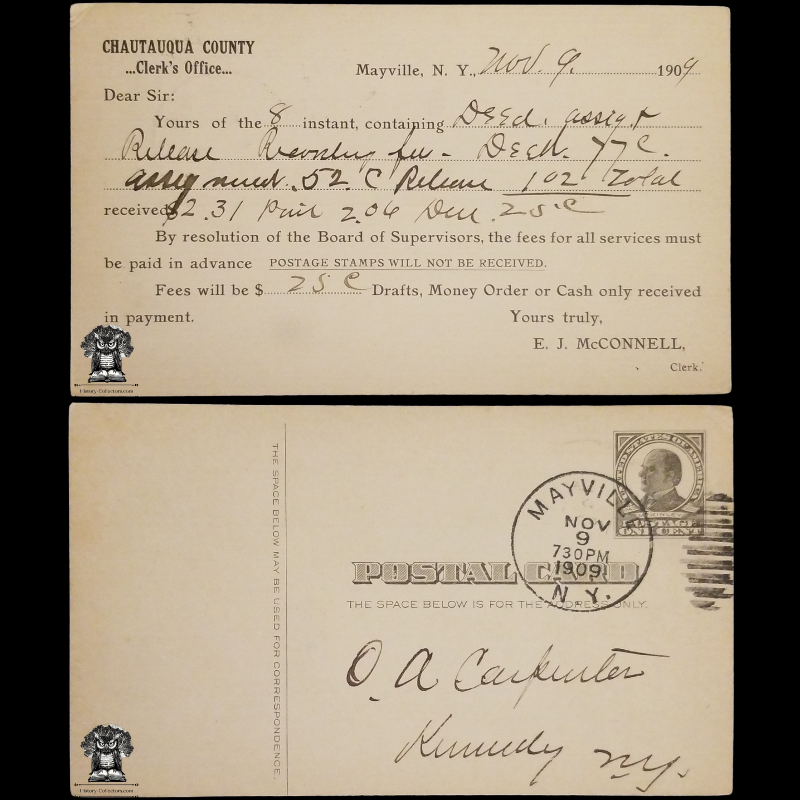 CHAUTAUQUA COUNTY
...Clerk's Office...
Mayville, N. Y., Nov. 9. 1909
Dear Sir:
Yours of the 8 instant, containing Deed. assig. +
Release Recording fee - Deed. 77 c.
assignment. 52. c Release 102 Total
received $2.31 Paid 2.06 Due. 25 c
By resolution of the Board of Supervisors, the fees for all services must
be paid in advance POSTAGE STAMPS WILL NOT BE RECEIVED.
Fees will be $ 25 c Drafts, Money Order or Cash only received
in payment. Yours truly,
E. J. McCONNELL,
Clerk.
History-Collectors.com
UNITED STATES OF AMERICA
McKINLEY
POSTAGE
ONE CENT
MAYVILLE
NOV
9
730PM
1909
N.Y.
POSTAL CARD
THE SPACE BELOW IS FOR THE ADDRESS ONLY.
THE SPACE BELOW MAY BE USED FOR CORRESPONDENCE.
O. A Carpenter
Kennedy n.y.
History-Collectors.com